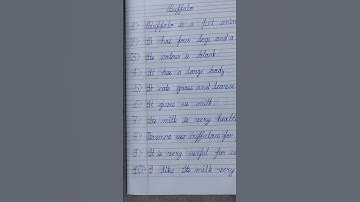 Buffalo
1) Buffalo is a pet anim
2) It has four legs and a
3) Its colour is black
4) It has a large body.
5) It eats grass and leaves
6) It gives us milk
7) Its milk is very health
8) Farmers use buffaloes for
9) It is very useful for us
10) I like its milk very